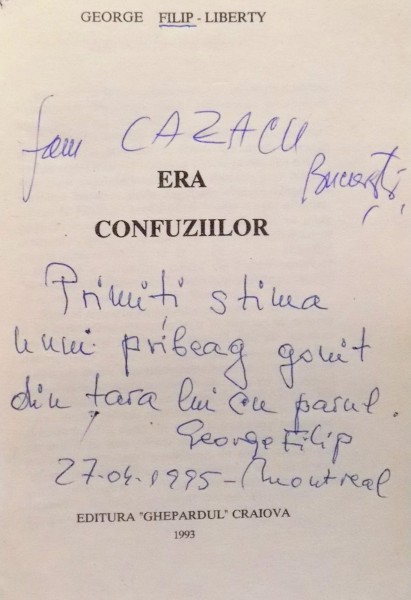 GEORGE FILIP - LIBERTY
fam CAZACU
București,
ERA
CONFUZIILOR
Primiți stima
unui pribeag gonit
din țara lui cu parul.
George Filip
27-04-1995 - Montreal
EDITURA "GHEPARDUL" CRAIOVA
1993